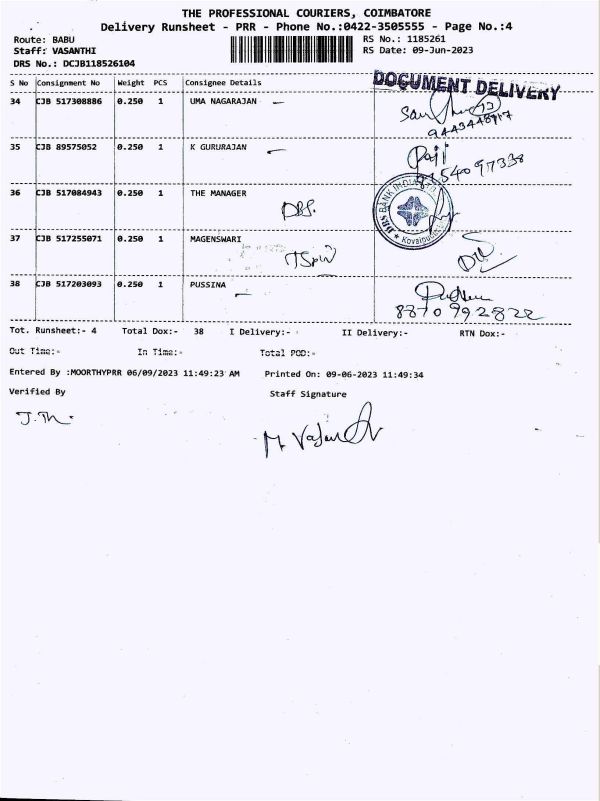 THE PROFESSIONAL COURIERS, COIMBATORE
Delivery Runsheet - PRR - Phone No.:0422-3505555 - Page No.:4
Route: BABU
RS No.: 1185261
Staff: VASANTHI
RS Date: 09-Jun-2023
DRS No.: DCJB118526104
DOCUMENT DELIVERY
S No Consignment No Weight PCS Consignee Details
34 CJB 517308886 0.250 1 UMA NAGARAJAN
35 CJB 89575052 0.250 1 K GURURAJAN
36 CJB 517084943 0.250 1 THE MANAGER
DBS.
DBS BANK INDIA
37 CJB 517255071 0.250 1 MAGENSWARI
38 CJB 517203093 0.250 1 PUSSINA
8870992822
Tot. Runsheet:- 4 Total Dox:- 38 I Delivery:- II Delivery:- RTN Dox:-
Out Time:- In Time:- Total POD:-
Entered By :MOORTHYPRR 06/09/2023 11:49:23 AM Printed On: 09-06-2023 11:49:34
Verified By Staff Signature